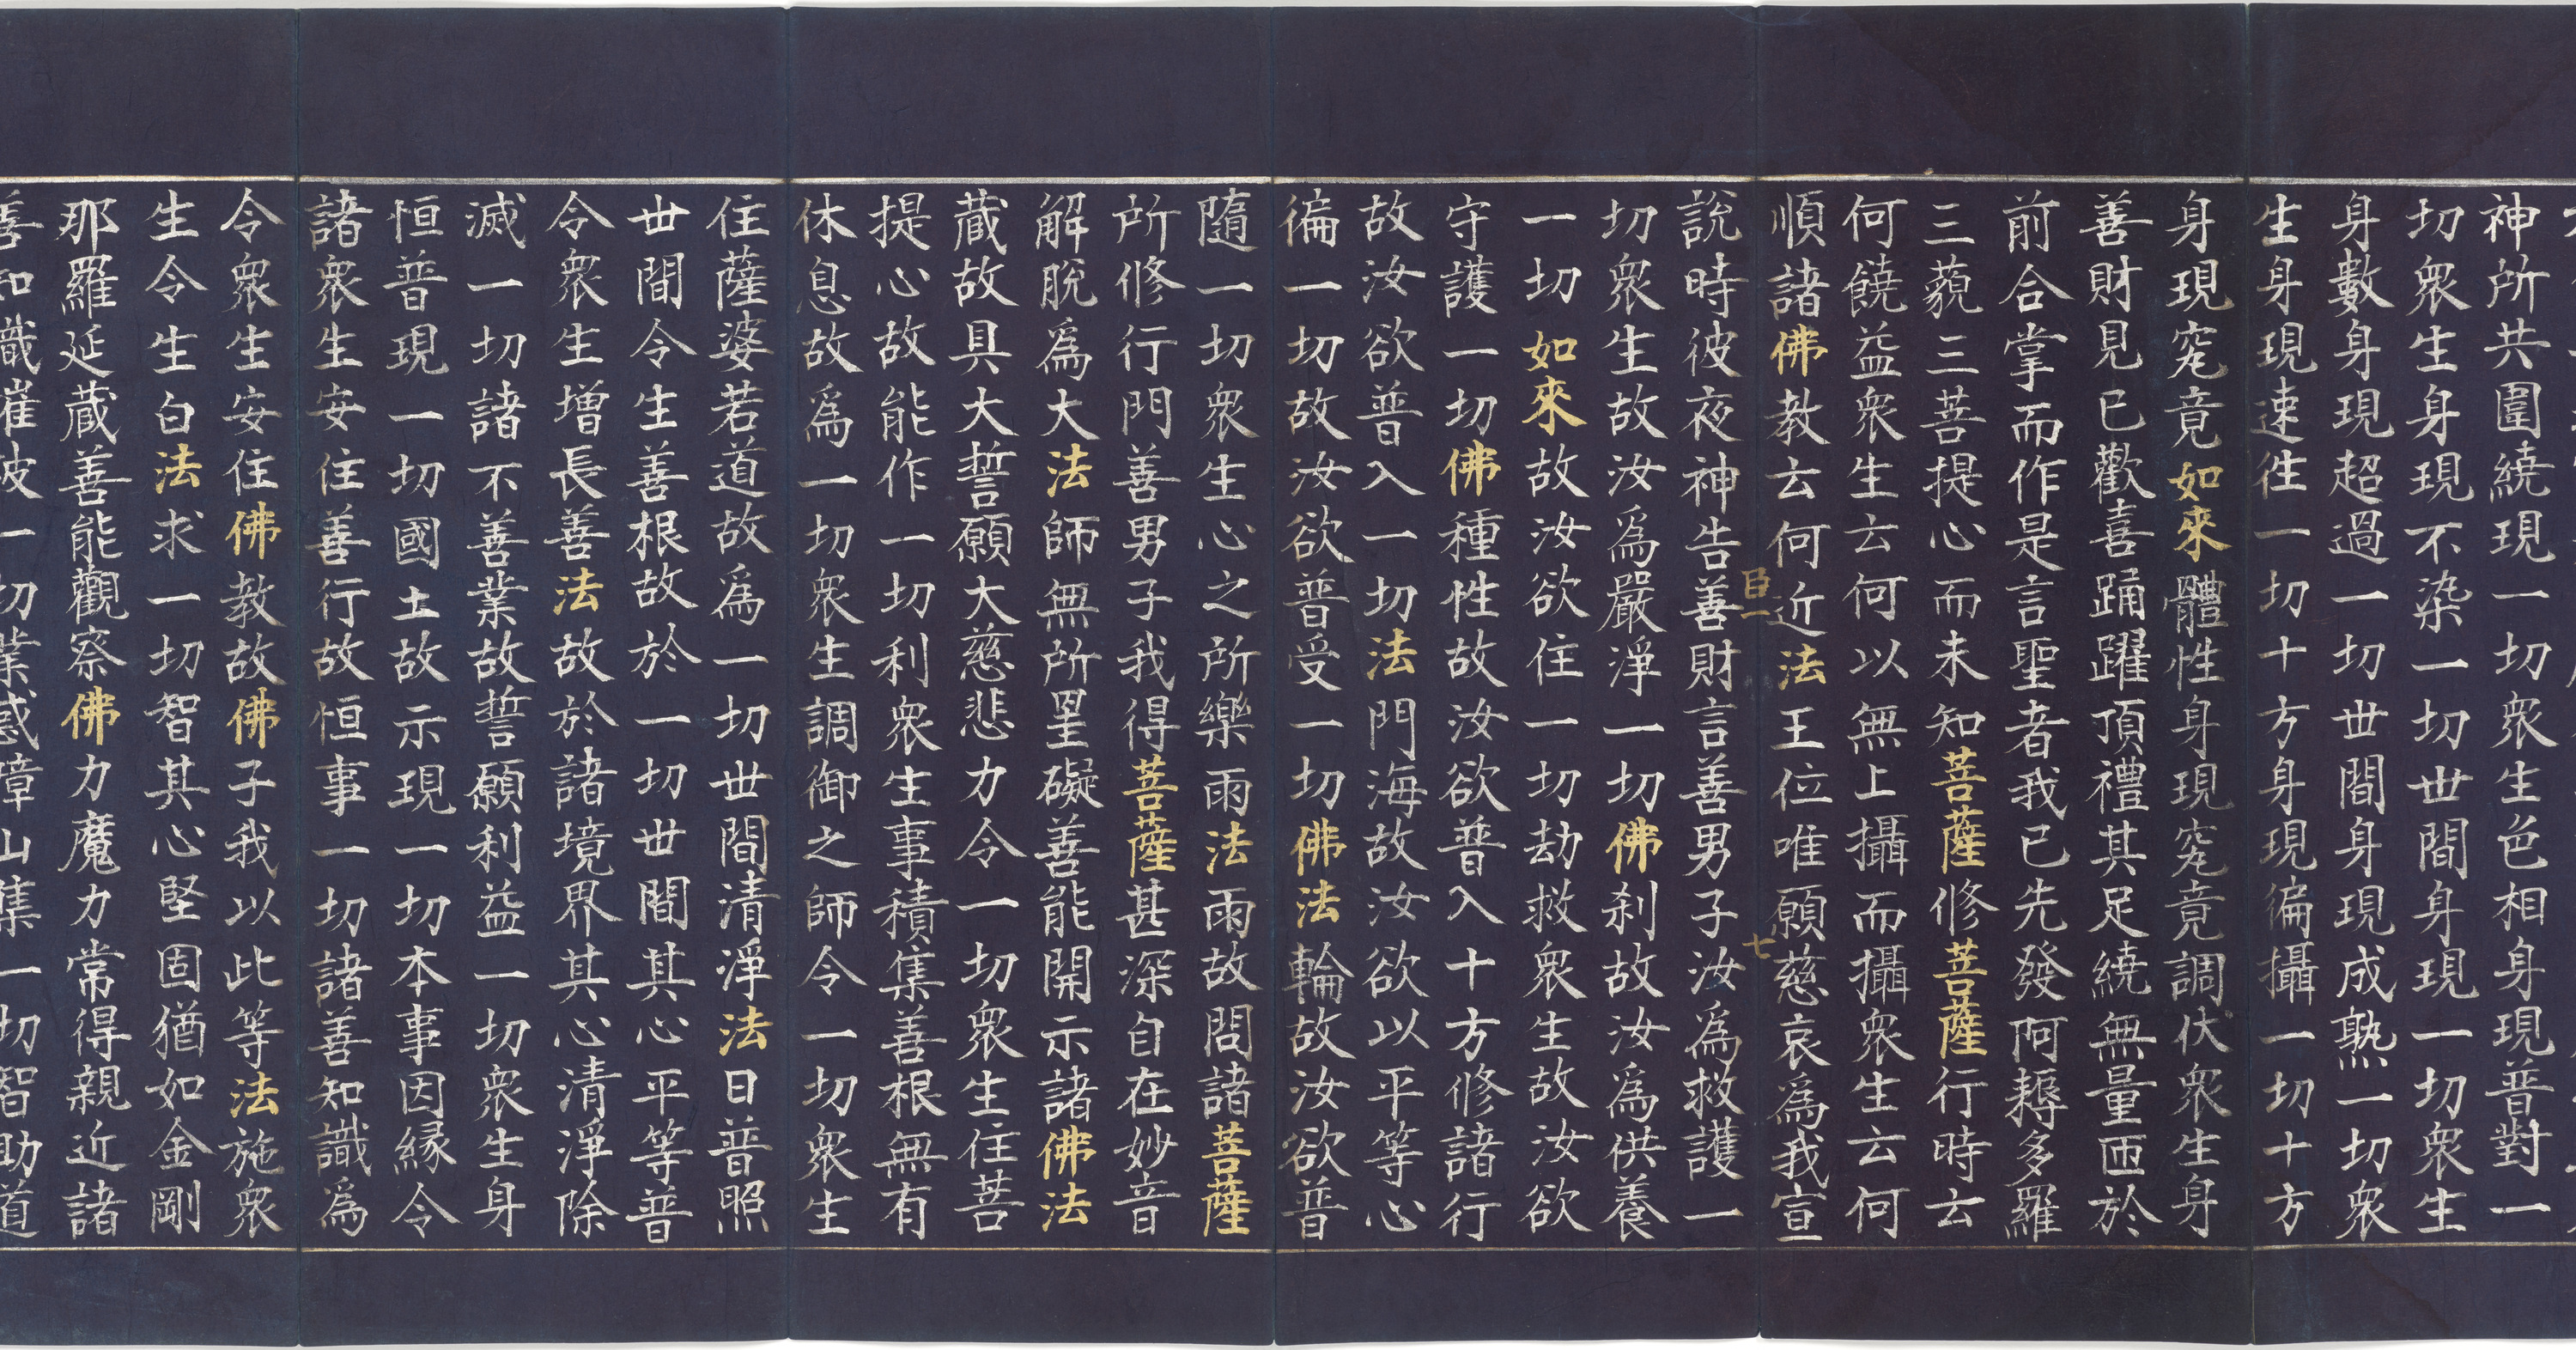 神所共圍繞現一切衆生色相身現普對一
切衆生身現不染一切世間身現一切衆生
身數身現超過一切世間身現成熟一切衆
生身現速徃一切十方身現徧攝一切十方
身現究竟如來體性身現究竟調伏衆生身
善財見已歡喜踊躍頂禮其足繞無量匝於
前合掌而作是言聖者我已先發阿耨多羅
三藐三菩提心而未知菩薩修菩薩行時云
何饒益衆生云何以無上攝而攝衆生云何
順諸佛教云何近法王位唯願慈哀爲我宣
臣一 七
說時彼夜神告善財言善男子汝爲救護一
切衆生故汝爲嚴淨一切佛刹故汝爲供養
一切如來故汝欲住一切劫救衆生故汝欲
守護一切佛種性故汝欲普入十方修諸行
故汝欲普入一切法門海故汝欲以平等心
徧一切故汝欲普受一切佛法輪故汝欲普
隨一切衆生心之所樂雨法雨故問諸菩薩
所修行門善男子我得菩薩甚深自在妙音
解脫爲大法師無所罣礙善能開示諸佛法
藏故具大誓願大慈悲力令一切衆生住菩
提心故能作一切利衆生事積集善根無有
休息故爲一切衆生調御之師令一切衆生
住薩婆若道故爲一切世間清淨法日普照
世間令生善根故於一切世間其心平等普
令衆生增長善法故於諸境界其心清淨除
滅一切諸不善業故誓願利益一切衆生身
恒普現一切國土故示現一切本事因緣令
諸衆生安住善行故恒事一切諸善知識爲
令衆生安住佛教故佛子我以此等法施衆
生令生白法求一切智其心堅固猶如金剛
那羅延藏善能觀察佛力魔力常得親近諸
善知識摧破一切業惑障山集一切智助道